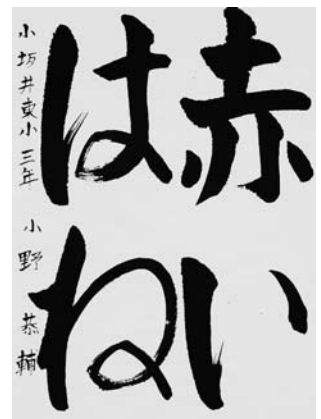 赤い
はね
小坂井東小 三年 小野 恭輔